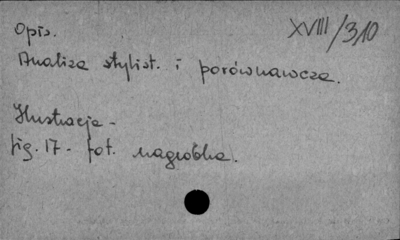 Opis. XVIII/310
Analiza stylist. i porównawcza.
Ilustracje -
fig. 17 - fot. nagrobka.